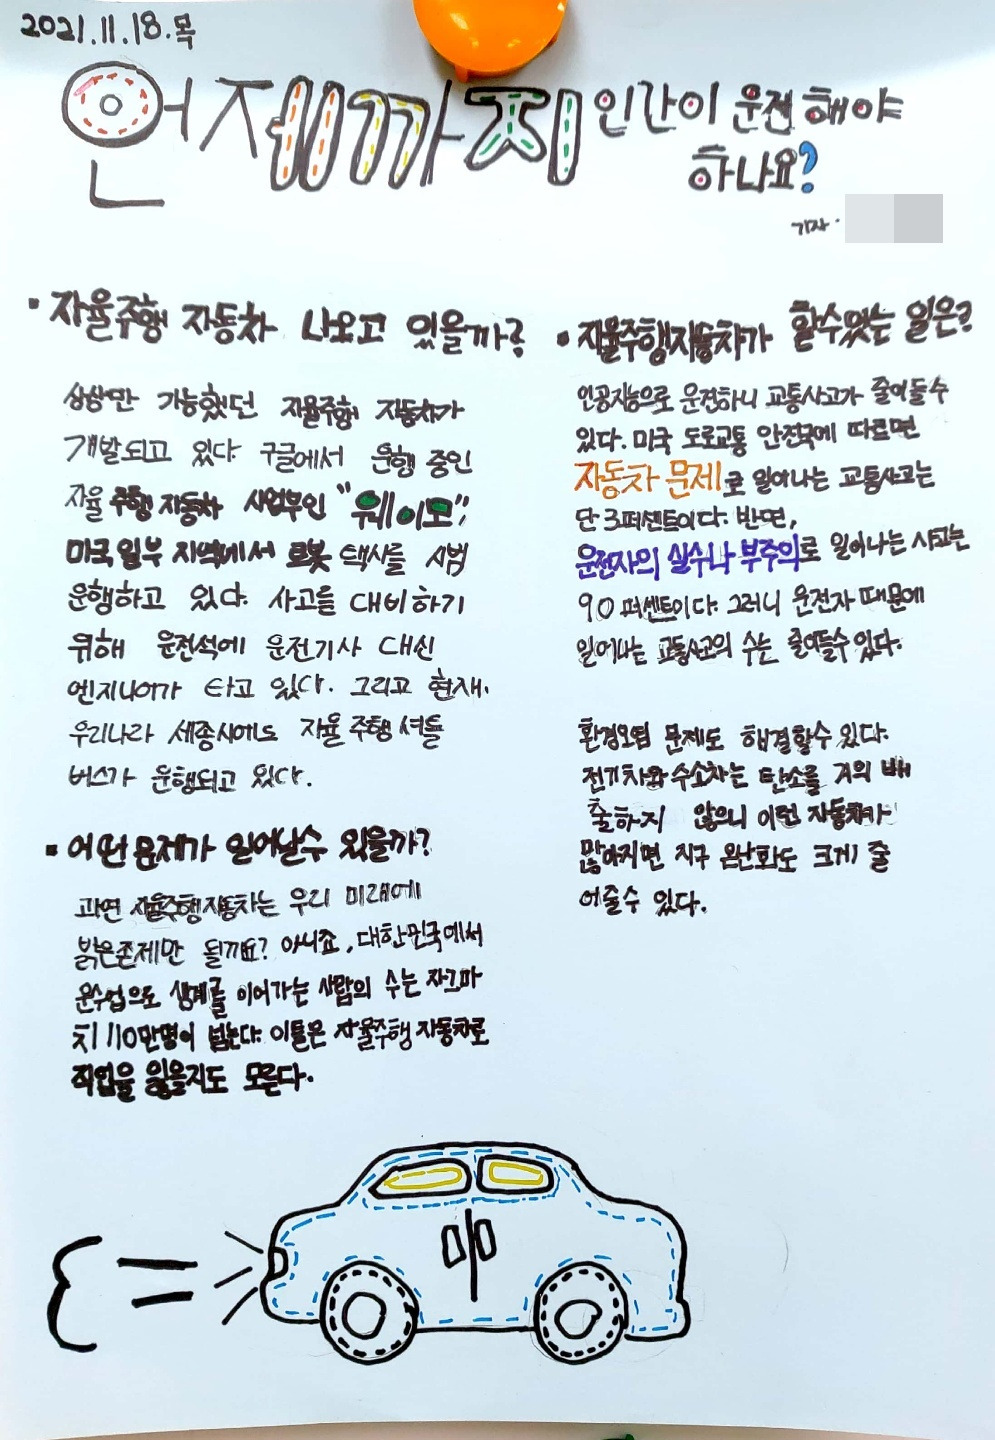 2021.11.18.목
언제까지 인간이 운전해야
하나요?
기자.
· 자율주행 자동차 나오고 있을까?
상상만 가능했던 자율주행 자동차가
개발되고 있다 구글에서 운행 중인
자율 주행 자동차 사업부인 "웨이모",
미국 일부 지역에서 로봇 택시를 시범
운행하고 있다. 사고를 대비하기
위해 운전석에 운전기사 대신
엔지니어가 타고 있다. 그리고 현재.
우리나라 세종시에도 자율 주행 셔틀
버스가 운행되고 있다.
· 어떤 문제가 일어날수 있을까?
과연 자율주행자동차는 우리 미래에
밝은존제만 될까요? 아니죠, 대한민국에서
운수업으로 생계를 이어가는 사람의 수는 자그마
치 110만명이 넘는다. 이들은 자율주행 자동차로
직업을 잃을지도 모른다.
· 자율주행자동차가 할수있는 일은?
인공지능으로 운전하니 교통사고가 줄어들수
있다. 미국 도로교통 안전국에 따르면
자동차 문제로 일어나는 교통사고는
단 3퍼센트이다. 반면,
운전자의 실수나 부주의로 일어나는 사고는
90퍼센트이다. 그러니 운전자 때문에
일어나는 교통사고의 수는 줄어들수 있다.
환경오염 문제도 해결할수 있다.
전기차와 수소차는 탄소를 거의 배
출하지 않으니 이런 자동차가
많아지면 지구 온난화도 크게 줄
어줄수 있다.